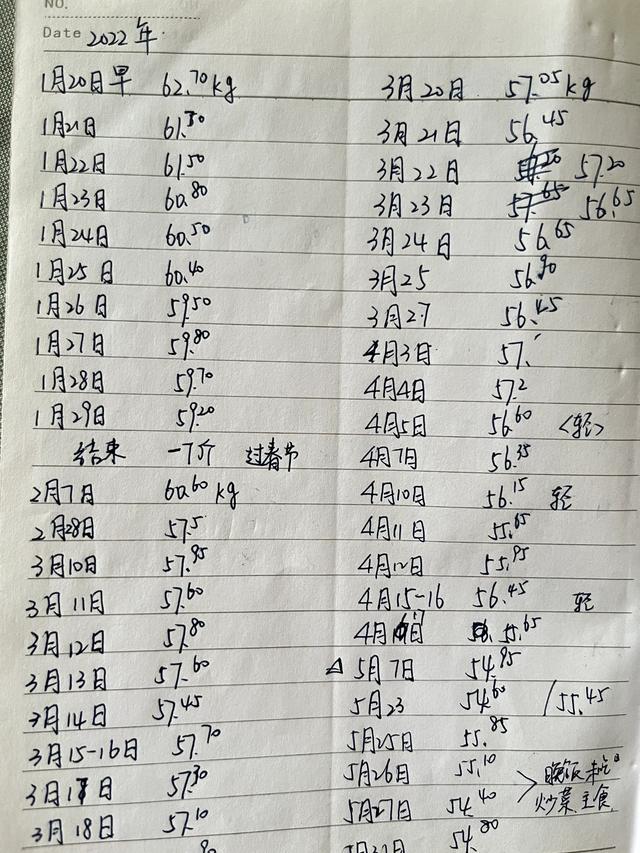 NO.
Date 2022年
1月20日早 62.70kg
1月21日 61.30
1月22日 61.50
1月23日 60.80
1月24日 60.50
1月25日 60.40
1月26日 59.50
1月27日 59.80
1月28日 59.70
1月29日 59.20
结束 一个疗 过春节
2月7日 60.60kg
2月28日 57.5
3月10日 57.95
3月11日 57.60
3月12日 57.80
3月13日 57.60
3月14日 57.45
3月15-16日 57.70
3月17日 57.30
3月18日 57.10
3月20日 57.05kg
3月21日 56.45
3月22日 57.20
3月23日 57.65 56.65
3月24日 56.65
3月25 56.90
3月27 56.45
4月3日 57.
4月4日 57.2
4月5日 56.60 <轻>
4月7日 56.35
4月10日 56.15 轻
4月11日 55.65
4月12日 55.95
4月15-16 56.45 轻
4月17日 55.65
△ 5月7日 54.95
5月23 54.60 /55.45
5月25日 55.85
5月26日 55.10 > 晚饭未吃
5月27日 54.40 炒菜主食
54.80